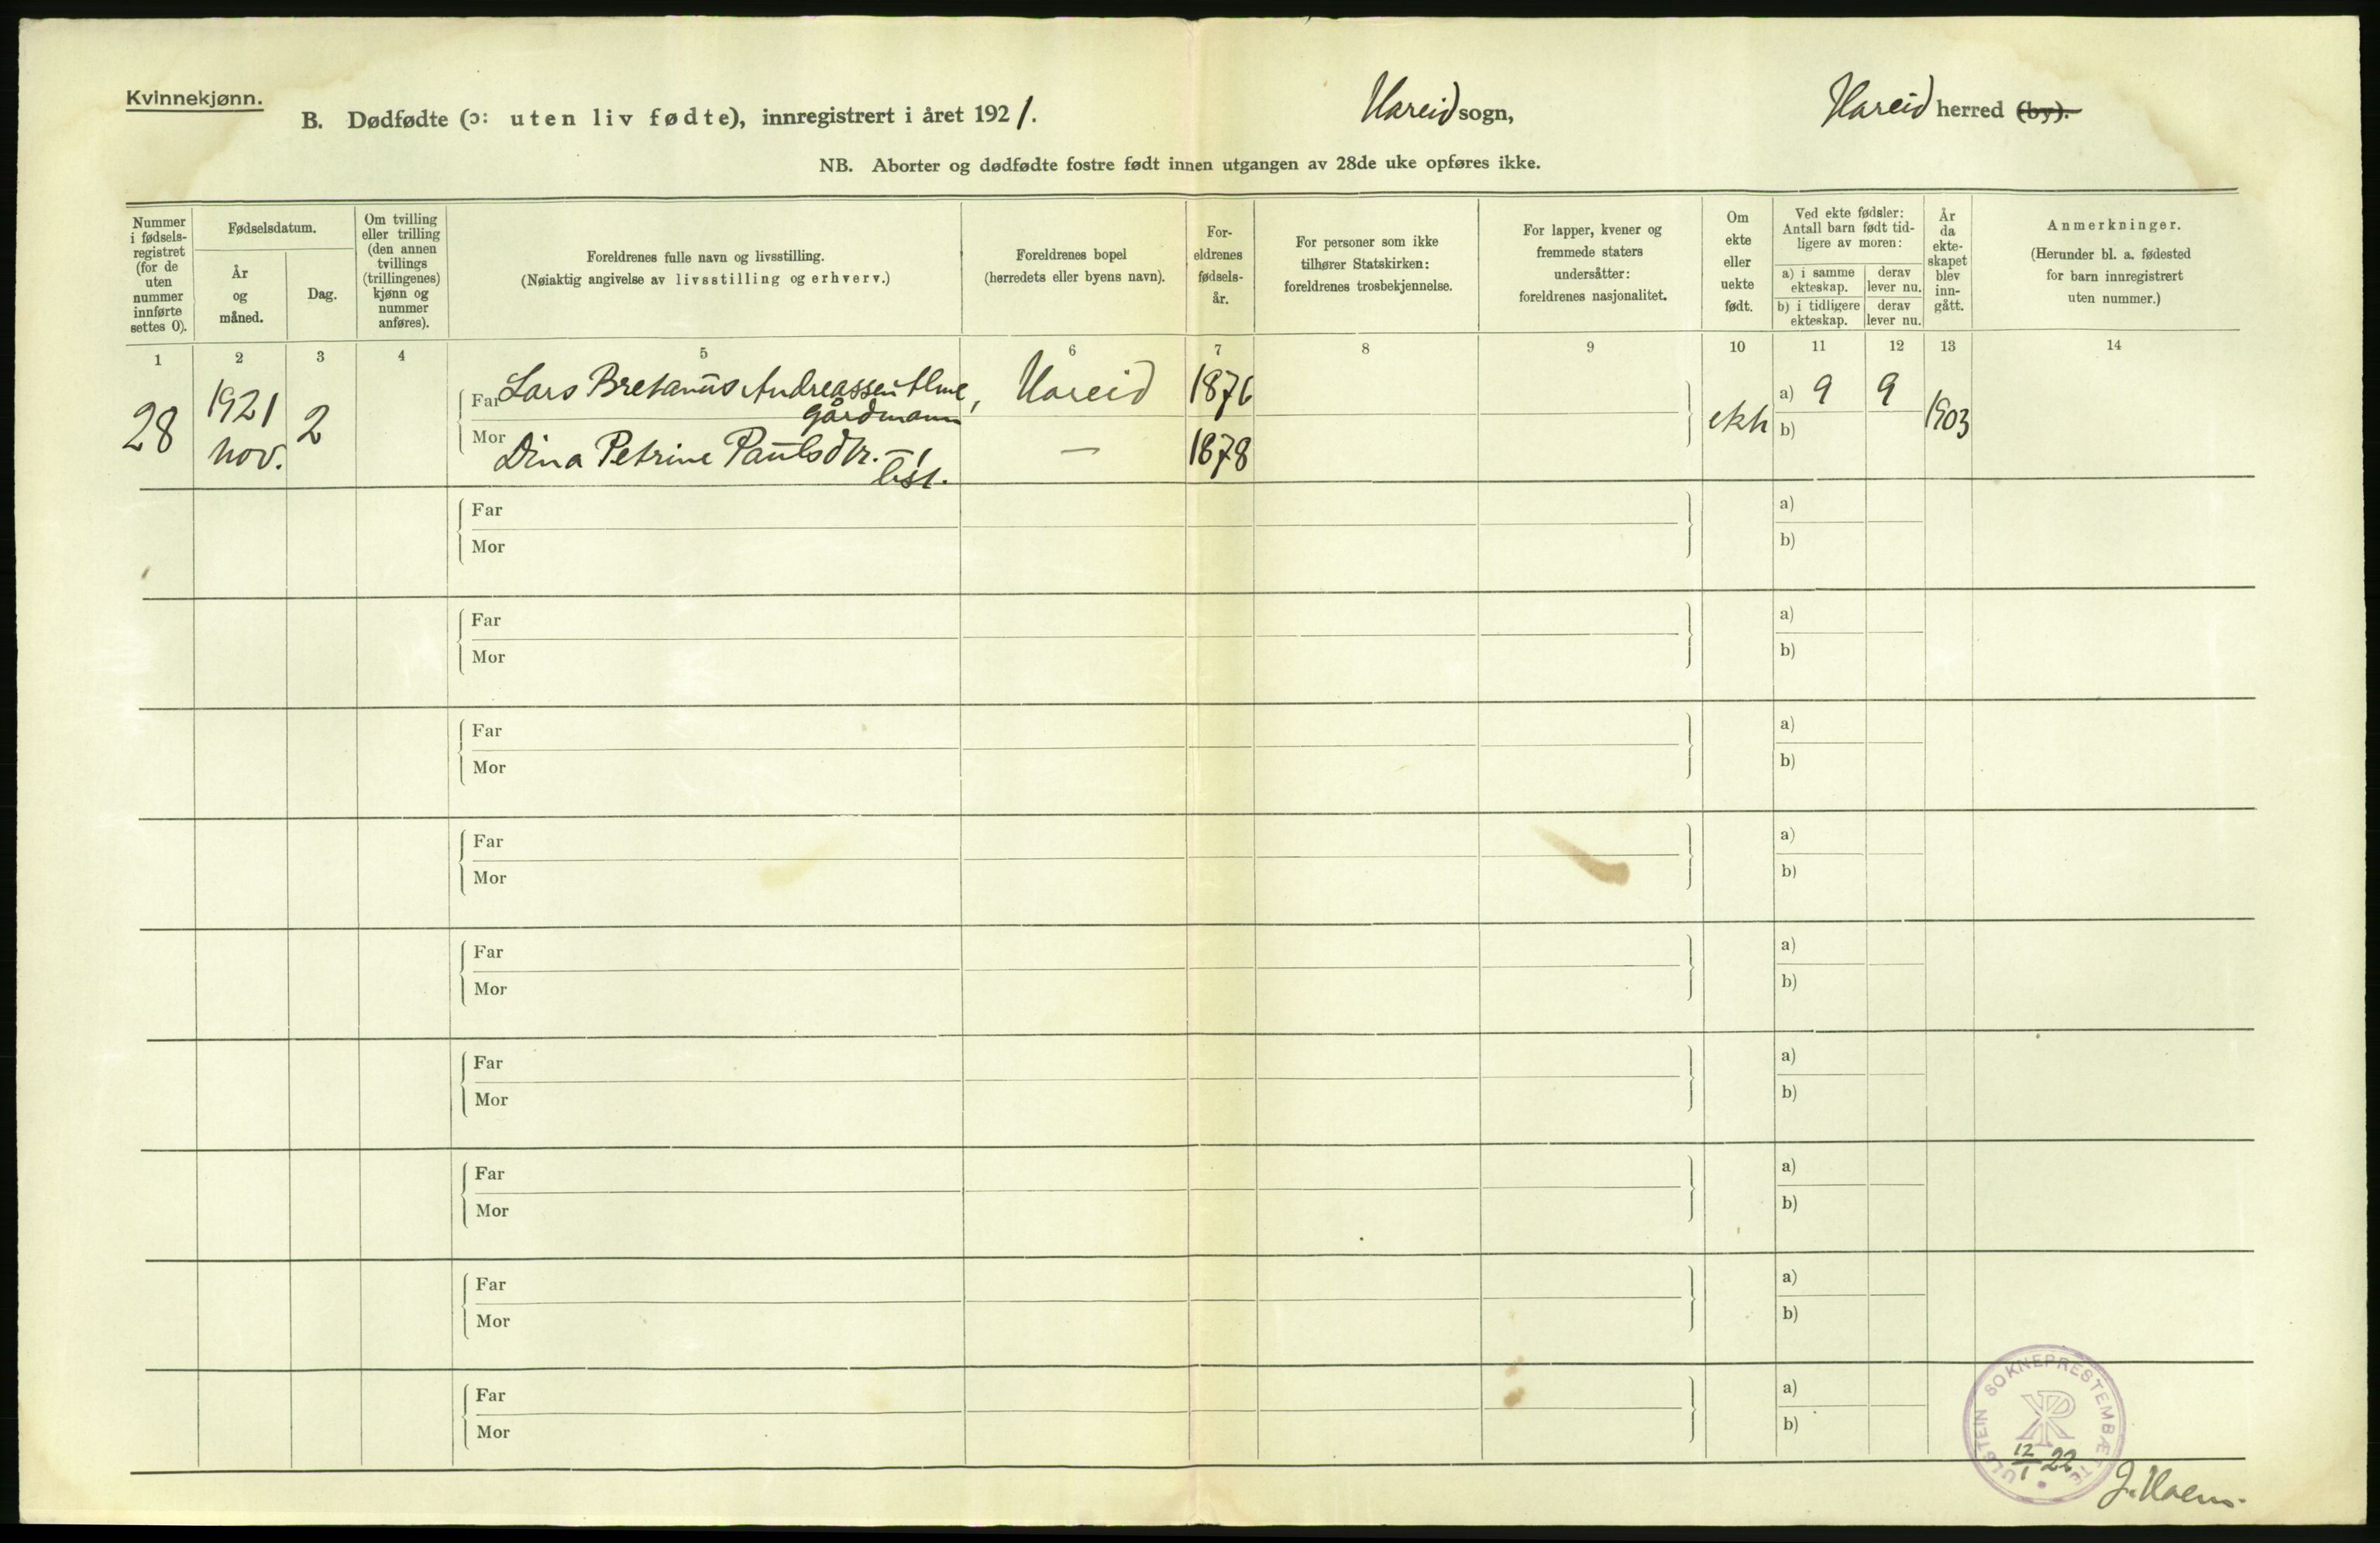 Kvinnekjønn.
B. Dødfødte (ɔ: uten liv fødte), innregistrert i året 1921. Hareid sogn, Hareid herred (by).
NB. Aborter og dødfødte fostre født innen utgangen av 28de uke opføres ikke.
Nummer
i fødsels-
registret
(for de
uten
nummer
innførte
settes 0).
Fødselsdatum.
År
og
måned.
Dag.
Om tvilling
eller trilling
(den annen
tvillings
(trillingenes)
kjønn og
nummer
anføres).
Foreldrenes fulle navn og livsstilling.
(Nøiaktig angivelse av livsstilling og erhverv.)
Foreldrenes bopel
(herredets eller byens navn).
For-
eldrenes
fødsels-
år.
For personer som ikke
tilhører Statskirken:
foreldrenes trosbekjennelse.
For lapper, kvener og
fremmede staters
undersåtter:
foreldrenes nasjonalitet.
Om
ekte
eller
uekte
født.
Ved ekte fødsler:
Antall barn født tid-
ligere av moren:
a) i samme
ekteskap.
derav
lever nu.
b) i tidligere
ekteskap.
derav
lever nu.
År
da
ekte-
skapet
blev
inn-
gått.
Anmerkninger.
(Herunder bl. a. fødested
for barn innregistrert
uten nummer.)
1 2 3 4 5 6 7 8 9 10 11 12 13 14
28
1921
nov.
2
Far Lars Bretanus Andreassen Alme,
gårdmann
Mor Dina Petrine Paulsdtr. —
Hareid
—
1876
1878
ekte
a) 9 9
b)
1903
Far
Mor
a)
b)
Far
Mor
a)
b)
Far
Mor
a)
b)
Far
Mor
a)
b)
Far
Mor
a)
b)
Far
Mor
a)
b)
Far
Mor
a)
b)
Far
Mor
a)
b)
Far
Mor
a)
b)
ULSTEIN SOKNEPRESTEMBÆTE
12/1 22